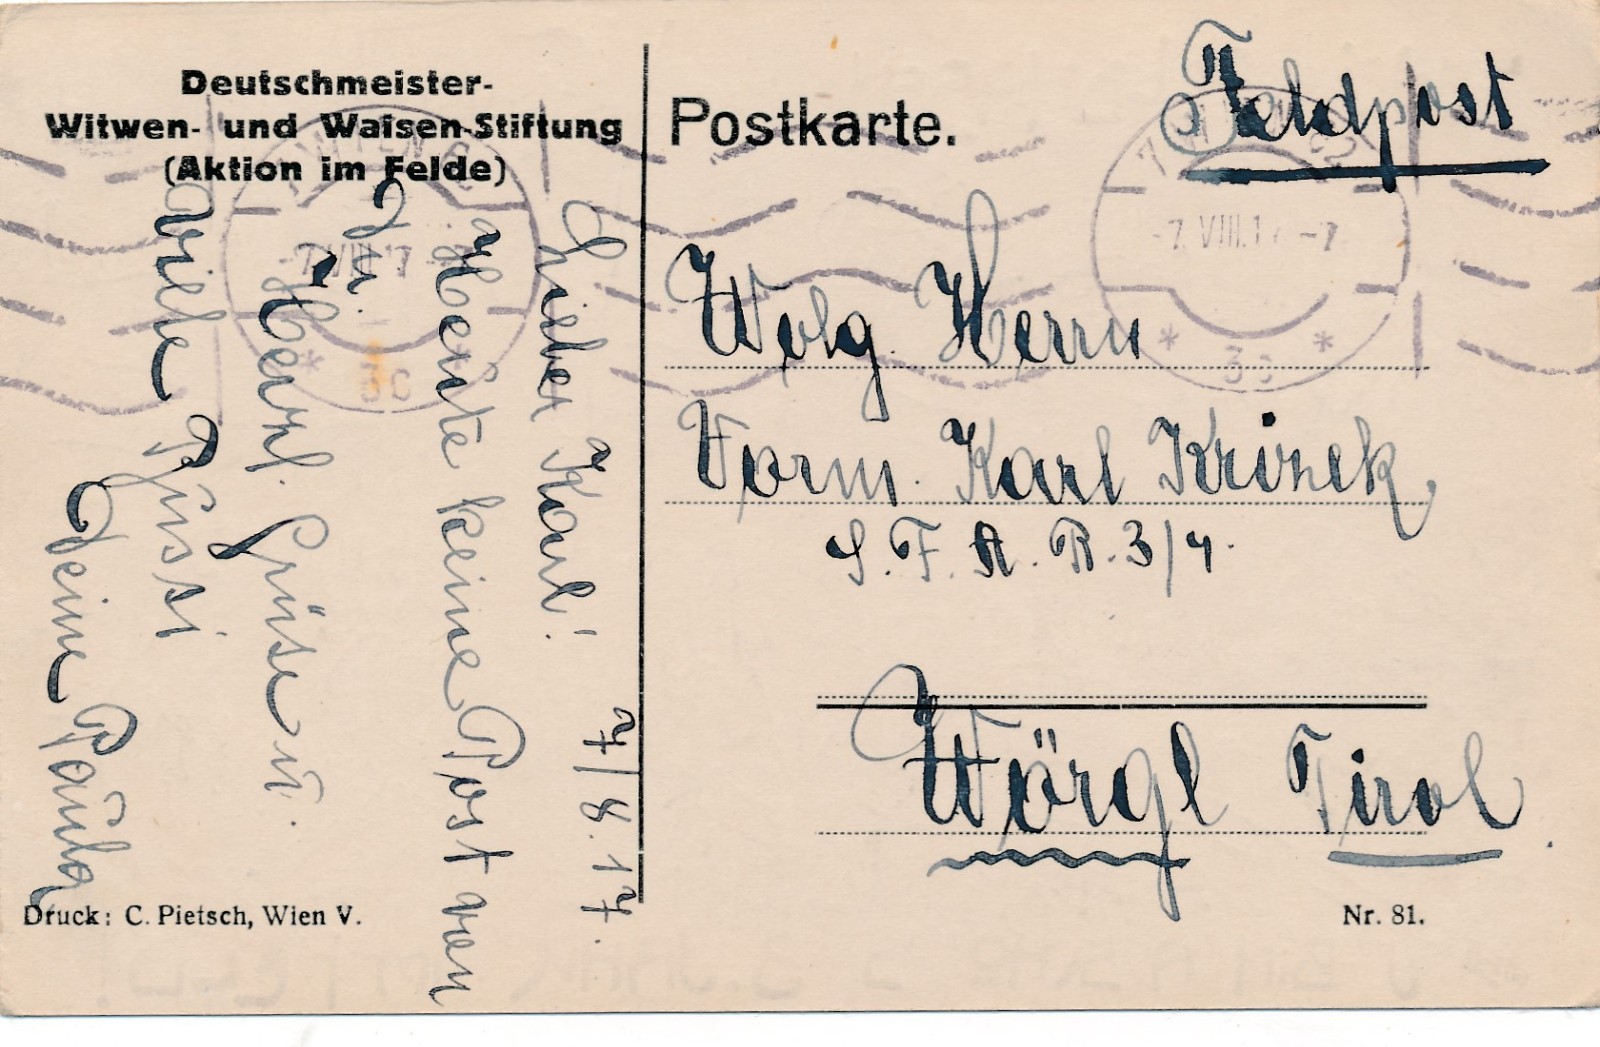 Deutschmeister-
Witwen- und Waisen-Stiftung
(Aktion im Felde)
Postkarte.
Feldpost
7/8.17.
Lieber Karl!
Heute keine Post von
Dir.
Herzl. Grüsse u.
viele Bussi
Deine Paula
Wolg. Herrn
Vorm. Karl Krizek
S. F. A. R. 3/4.
Wörgl Tirol.
-7. VIII. 17 -7
* 3c *
-7. VIII. 17
* 3c
Druck: C. Pietsch, Wien V.
Nr. 81.